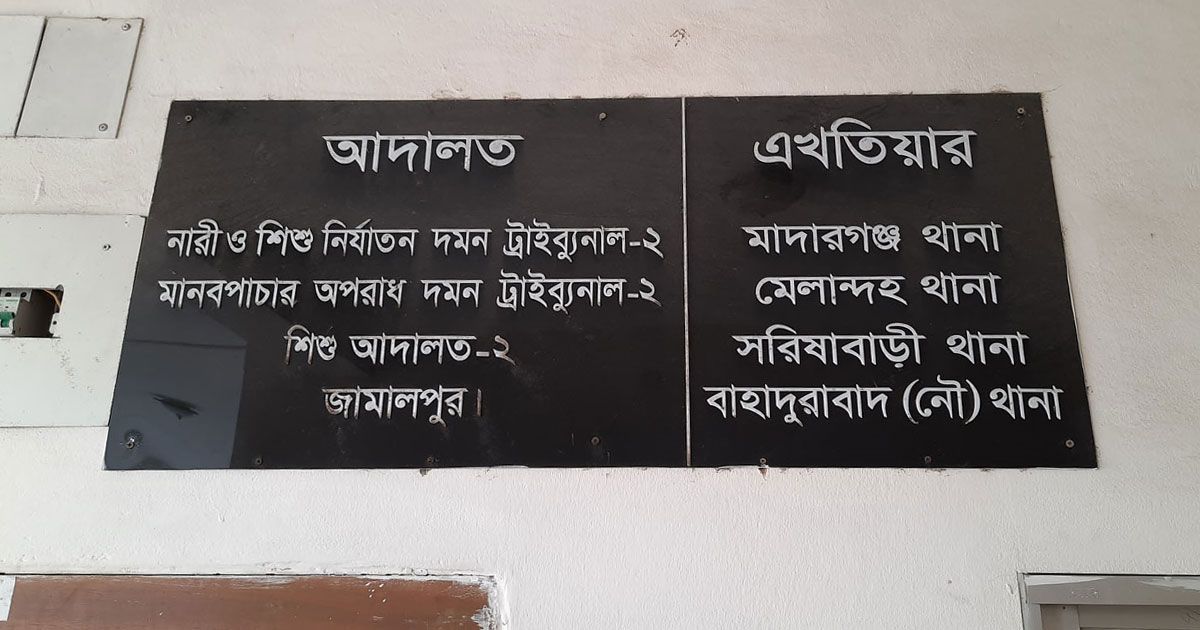 আদালত
নারী ও শিশু নির্যাতন দমন ট্রাইব্যুনাল-২
মানবপাচার অপরাধ দমন ট্রাইব্যুনাল-২
শিশু আদালত-২
জামালপুর।
এখতিয়ার
মাদারগঞ্জ থানা
মেলান্দহ থানা
সরিষাবাড়ী থানা
বাহাদুরাবাদ (নৌ) থানা